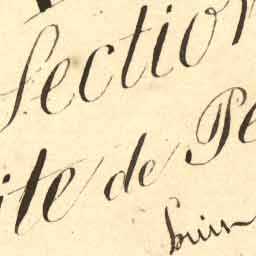 Section
ite de Pe